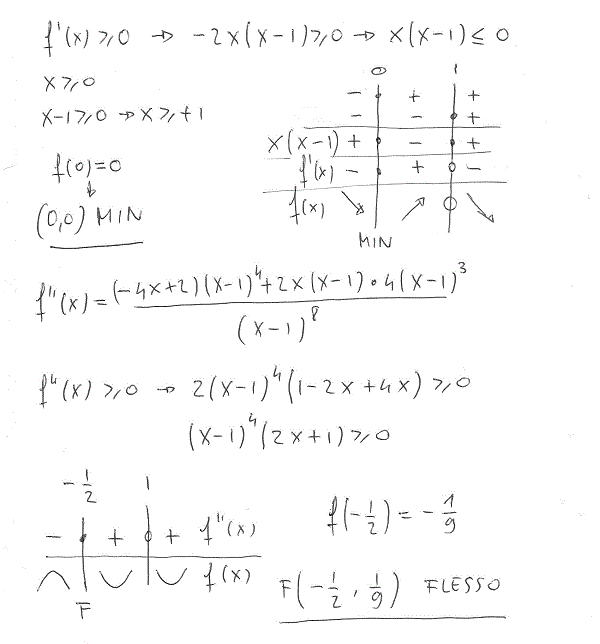 f'(x) ≥ 0 → -2x(x-1) ≥ 0 → x(x-1) ≤ 0
x ≥ 0
x-1 ≥ 0 → x ≥ +1
0 1
- + +
- - +
x(x-1) + - +
f'(x) - + -
f(x) ↘ ↗ ↘
MIN
f(0)=0
↓
(0,0) MIN
f''(x) = ((-4x+2)(x-1)^4+2x(x-1)·4(x-1)^3)/(x-1)^8
f''(x) ≥ 0 → 2(x-1)^4(1-2x+4x) ≥ 0
(x-1)^4(2x+1) ≥ 0
-1/2 1
- + + f''(x)
f(x)
F
f(-1/2) = -1/9
F(-1/2, 1/9) FLESSO